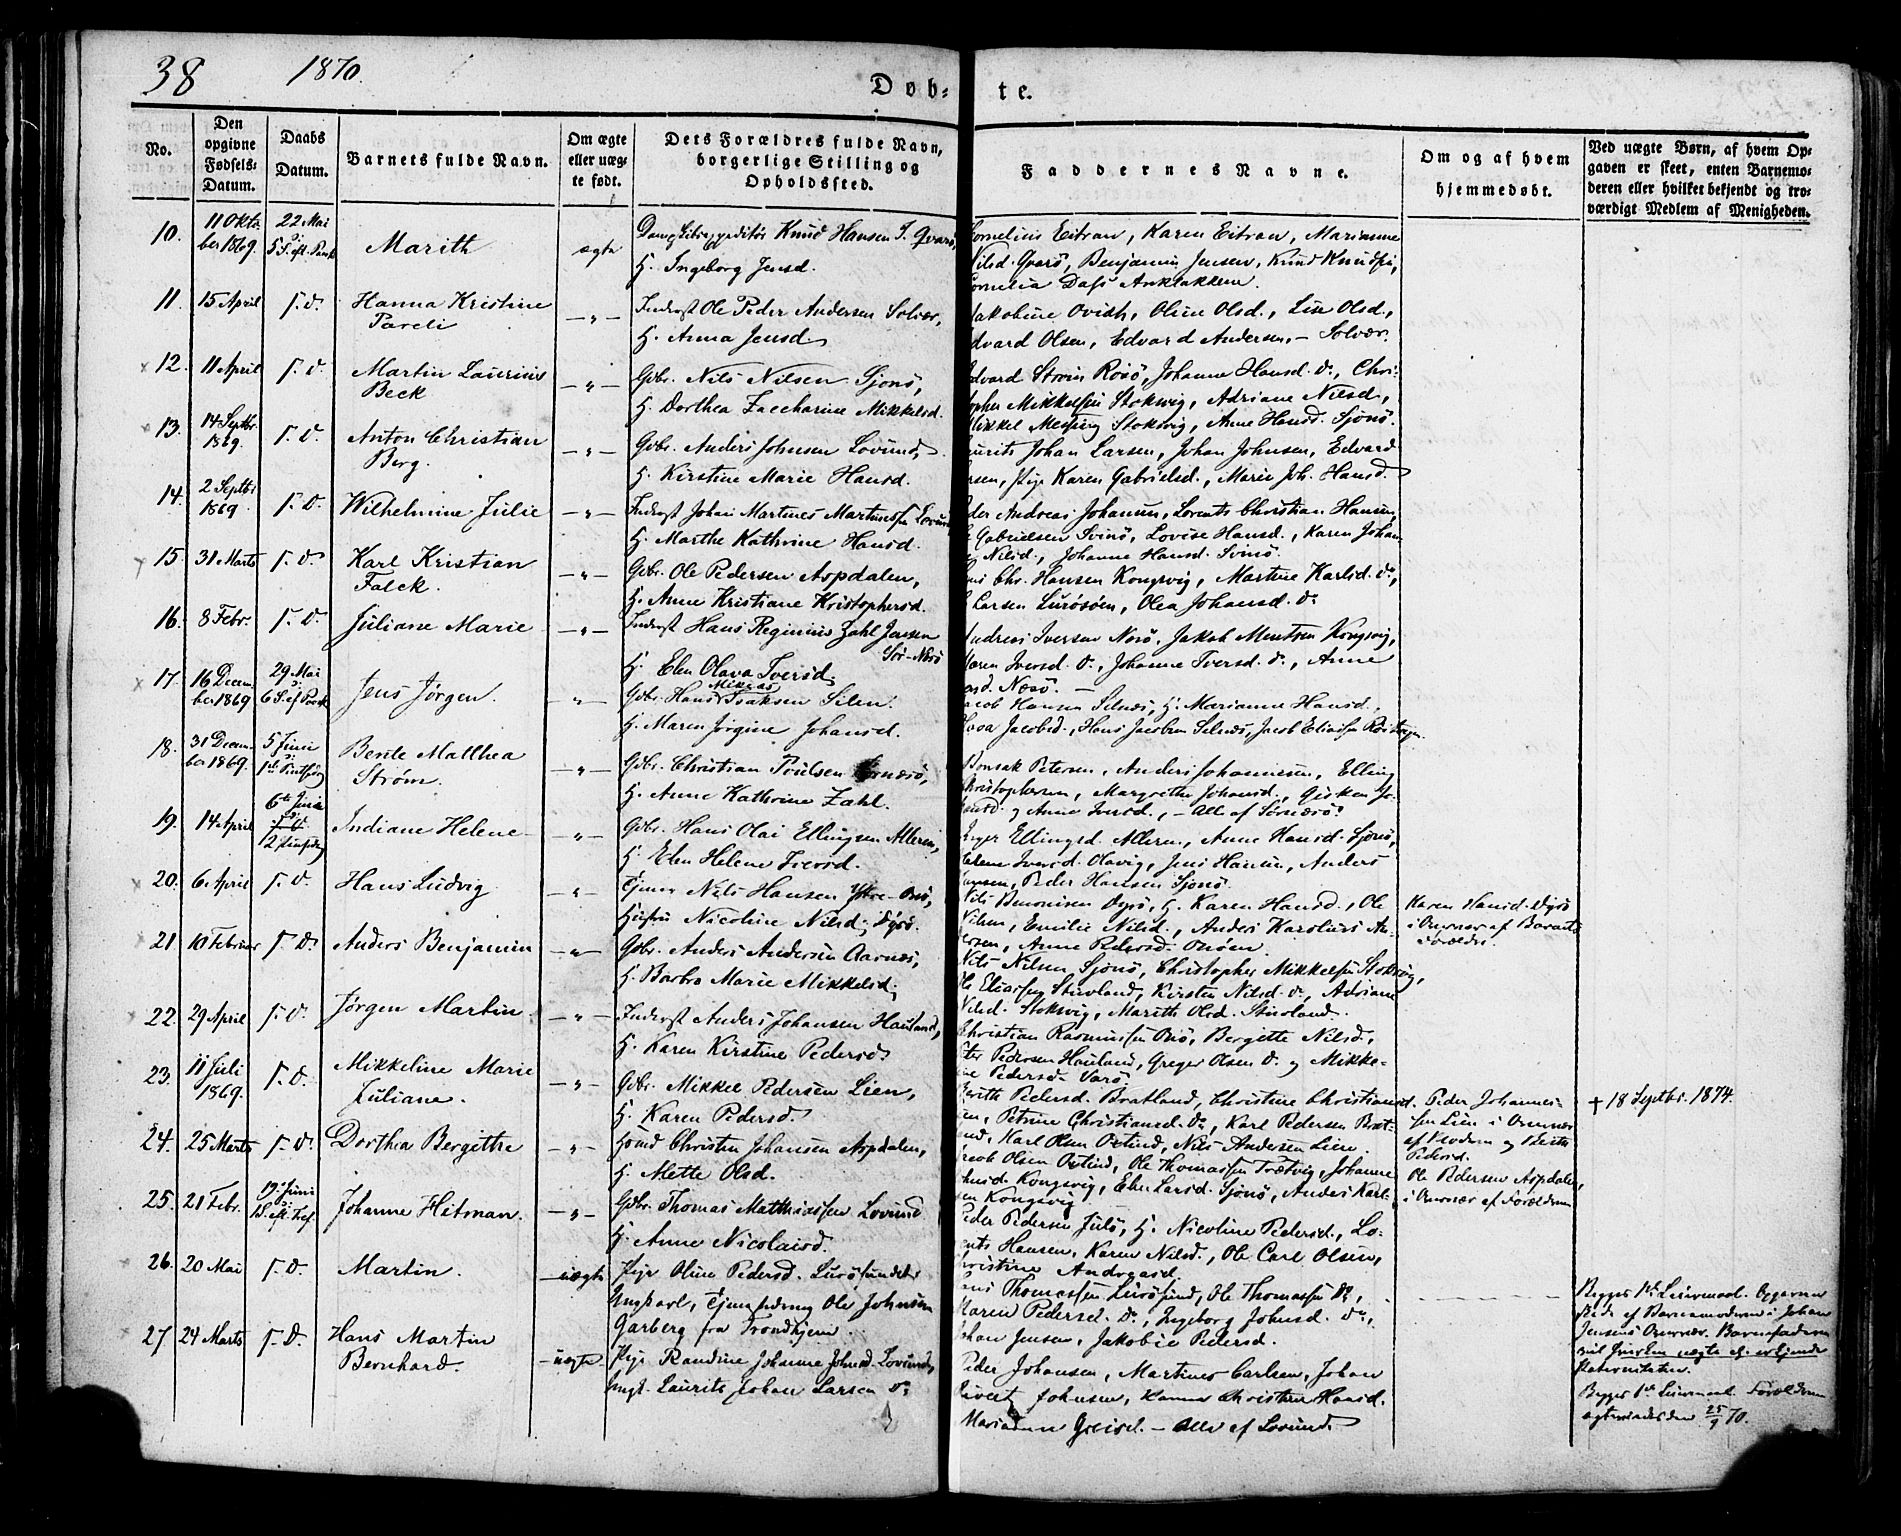 38 1870.
Døb- te.
No.
Den opgivne Fødsels-Datum.
Daabs Datum.
Barnets fulde Navn.
Om ægte eller uægte født.
Dets Forældres fulde Navn, borgerlige Stilling og Opholdssted.
Faddernes Navne.
Om og af hvem hjemmedøbt.
Ved uægte Børn, af hvem Opgaven er skeet, enten Barnemoderen eller hvilket bekjendt og troværdigt Medlem af Menigheden.
10. 11 Oktober 1869. 22 Mai Marith ægte Knud Hansen
H. Ingeborg Jensd.
Cornelius Eitran, Karen Eitran, Marianne
Nilsd. Qvarø, Benjamin Jensen, Knud Knudsen,
Cornelia Dass
11. 15 April s. d. Hanna Kristine
Pareli
Inderst Ole Peder Andersen Solvær,
H. Anna Jensd.
Jakobine Ovidh, Oline Olsd., Lise Olsd.,
Edvard Olsen, Edvard Andersen, – Solvær.
12. 11 April s. d. Martin Laurius
Beck
Gdbr. Nils Nilsen Sjonø,
H. Dorthea Zaccharine Mikkelsd.
Edvard Strøm Rosø, Johanne Hansd. do., Chri-
stopher Mikkelsen Stoksvig, Adriane Nilsd.,
Stoksvig, Anne Hansd. Sjonø.
13. 14 Septbr. 1869. s. d. Anton Christian
Berg.
Gdbr. Anders Johnsen Lovund,
H. Kirstine Marie Hansd.
Laurits Johan Larsen, Johan Johnsen, Edvard
Pige Karen Gabrielsd., Marie Joh. Hansd.
14. 2 Septbr 1869 s. d. Wilhelmine Julie
Inderst Johan Martines Martinessen Lovund
H. Marthe Kathrine Hansd.
Peder Andreas Johansen, Lorents Christian Hansen,
Gabrielsen Svinø, Lovise Hansd., Karen Johan
Nilsd., Johanne Hansd. Svinø.
15. 31 Marts s. d. Karl Kristian
Falck.
Gdbr. Ole Pedersen Aspdalen,
H. Anne Kristiane Kristophersd.
Chr. Hansen Kongsvig, Martine Karlsd. do.,
Larsen Lurøsøen, Olea Johansd. do
16. 8 Febr. s. d. Juliane Marie
Inderst Hans Reginius Zahl Jensen
Sør-Nesø
H. Elen Olava Iversd.
Andreas Iversen Nesø, Jakob Mentsen Kongsvig,
Maren Iversd. do., Johanne Iversd. do., Anne
Nesø. –
17. 16 December 1869 29 Mai Jens Jørgen.
Gdbr. Hans Isaksen Silen.
H. Maren Jørgine Johansd.
Jacob Hansen Selnæs, H. Marianne Hansd.,
Jacobsd., Hans Jacobsen Selnæs, Jacob Eliassen
18. 31 December 1869. 5 Juni Bente Matthea
Strøm.
Gdbr. Christian Poulsen Sørnæsø,
H. Anne Kathrine Zahl.
Bonsak Petersen, Anders Johannesen, Elling
Christophersen, Margrethe Johansd., Gisken Jo-
hansd. og Anne Iversd., – Alle af Sørnæsø.
19. 14 April 6te Juni Indiane Helene
Gdbr. Hans Olai Ellingsen Alleren,
H. Elen Helene Iversd.
Inger Ellingsd. Alleren, Anne Hansd. Sjonø,
Helene Iversd. Olavig, Jens Hansen, Anders
Hansen, Peder Hansen Sjonø.
20. 6 April s. d. Hans Ludvig
Nils Hansen Ytre-Onø,
Hustru Nicoline Nilsd. Dyrø.
Nils Benonisen Dyrø, H. Karen Hansd., Ole
Nilsen, Emilie Nilsd., Anders Karolius An-
dersen, Anne Pedersd. Onøen.
Karen Hansd. Dyrø
i Overvær af Barnets
Forældre.
21 10 Februar s. d. Anders Benjamin
Gdbr. Anders Andersen Aarnes,
H. Barbro Marie Mikkelsd.
Nils Nilsen Sjonø, Christopher Mikkelsen Stoksvig,
Ole Eliassen Stuvland, Kirsten Nilsd. do., Adriane
Nilsd. Stoksvig, Marith Olsd. Stuvland.
22. 29 April s. d. Jørgen Martin
Inderst Anders Johansen Hauland,
H. Karen Kirstine Pedersd.
Christian Rasmussen Onø, Bergitte Nilsd.,
Pedersen Hauland, Greger Olsen do. og Mikke-
line Pedersd. Varø.
23. 11 Juli 1869. s. d. Mikkeline Marie
Juliane.
Gdbr. Mikkel Pedersen Lien,
H. Karen Pedersd.
Berith Pedersd. Bratland, Christine Christiansd.
Lien, Petrine Christiansd. do., Karl Pedersen Brat-
land, Karl Olsen Oxtind, Nils Andersen Lien.
Peder Johannes-
sen Lien i Overvær
af
Pedersd.
† 18 Septbr. 1874.
24. 25 Marts s. d. Dorthea Bergitthe
Husmd Christen Johansen Aspdalen,
H. Mette Olsd.
Jacob Olsen Oxtind, Ole Thomassen Trætvig, Johanne
Kongsvig, Elen Larsd. Sjonø, Anders Karl-
sen Kongsvig
Ole Pedersen Aspdalen,
i Overvær af Forældrene
25. 21 Febr. 19 Juni Johanne Heitman.
Gdbr. Thomas Matthiassen Lovund
H. Anne Nicolaisd.
Peder Pedersen Julø, H. Nicoline Pedersd., Lo-
rents Hansen, Karen Nilsd., Ole Carl Olsen,
Christine Andreasd.
26. 20 Mai s. d. Martin. uægte Pige Oline Pedersd. Lurøsundet
Ungkarl, Ole Johnsen
Garberg fra Trondhjem.
Hans Thomassen Lurøsund, Ole Thomassen do.,
Maren Pedersd. do., Ingeborg Johnsd. do.,
Johan Jensen, Jakobie Pedersd.
Begges 1ste Leiermaal. Opgaven
skede af Barnemoderen i Johan
Jensens Overvær. Barnefaderen
27 24 Marts s. d. Hans Martin
Bernhard.
uægte Pige Randine Johanne Johnsd. Lovund,
Ungk. Laurits Johan Larsen do
Peder Johansen, Martines Carlsen, Johan
Sivert Johnsen, Hanna Christine Hansd.
Greisd. – Alle af Lovund.
Begges 1ste Leiermaal. Forældrene
ægteviedes den 25/9 70.